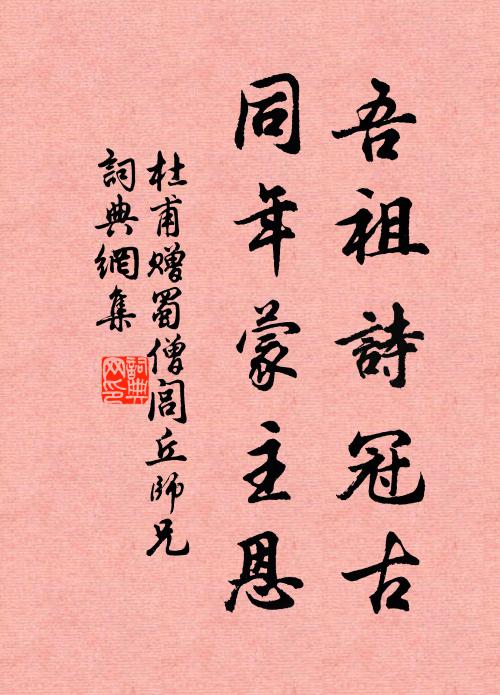 吾祖詩冠古
同年蒙主恩
杜甫贈蜀僧閭丘師兄
詞典網集
詞典
网印